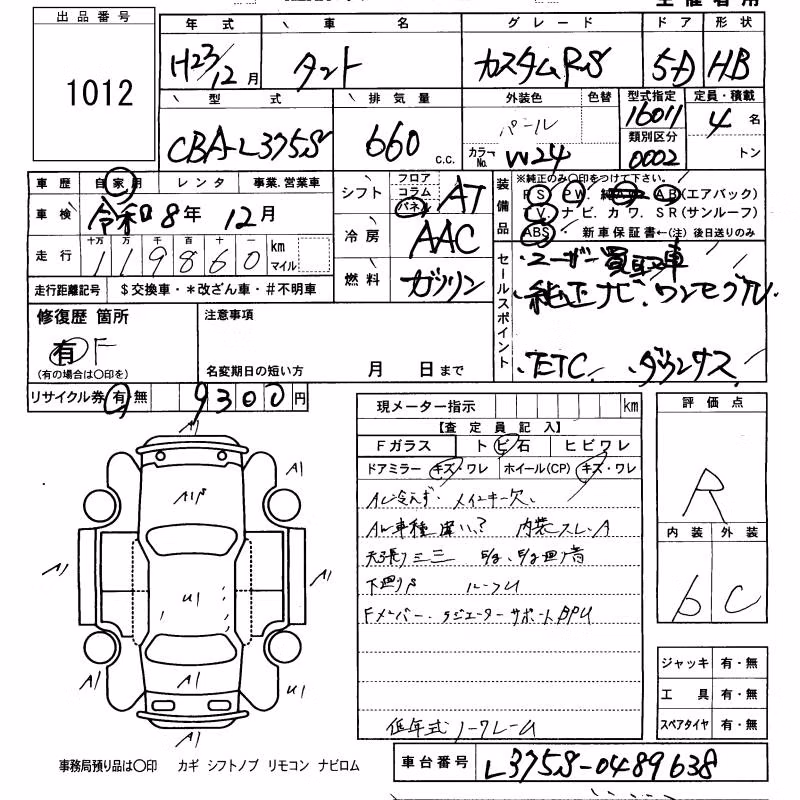 出品番号
1012
年式 車名 グレード ドア 形状
H23/12月 タント カスタムRS 5-D HB
型式 排気量 外装色 色替 型式指定 定員・積載
CBA-L375S 660 c.c. パール 16011 4名
カラーNo. W24 類別区分 0002 トン
車歴 自家用 レンタ 事業.営業車
車検 令和8年 12月
走行 十万 万 千 百 十 一 km マイル
119860
走行距離記号 $交換車・*改ざん車・#不明車
シフト フロア コラム パネル AT
冷房 AAC
燃料 ガソリン
装備品 ※純正のみ〇印をつけて下さい。
PS PW AB(エアバック)
TV ナビ カワ SR(サンルーフ)
ABS 新車保証書←(注)後日送りのみ
セールスポイント
・ユーザー買取車
・純正ナビ.ワンセグTV
・ETC. ダウンサス
修復歴 箇所
有 F
(有の場合は〇印を)
注意事項
名変期日の短い方 月 日まで
リサイクル券 有・無 9300円
現メーター指示 km
【査定員記入】
Fガラス トビ石 ヒビワレ
ドアミラー キズ・ワレ ホイール(CP) キズ・ワレ
AC冷えず. メインキー欠.
内装スレ.A
下廻りS
Fメンバー. ラジエーターサポートBPU
低年式
評価点
R
内装 外装
b C
ジャッキ 有・無
工具 有・無
スペアタイヤ 有・無
A1
A1
A1
U1
A1
A1
A1
A1
U1
A1
事務局預り品は〇印 カギ シフトノブ リモコン ナビロム
車台番号 L375S-0489638